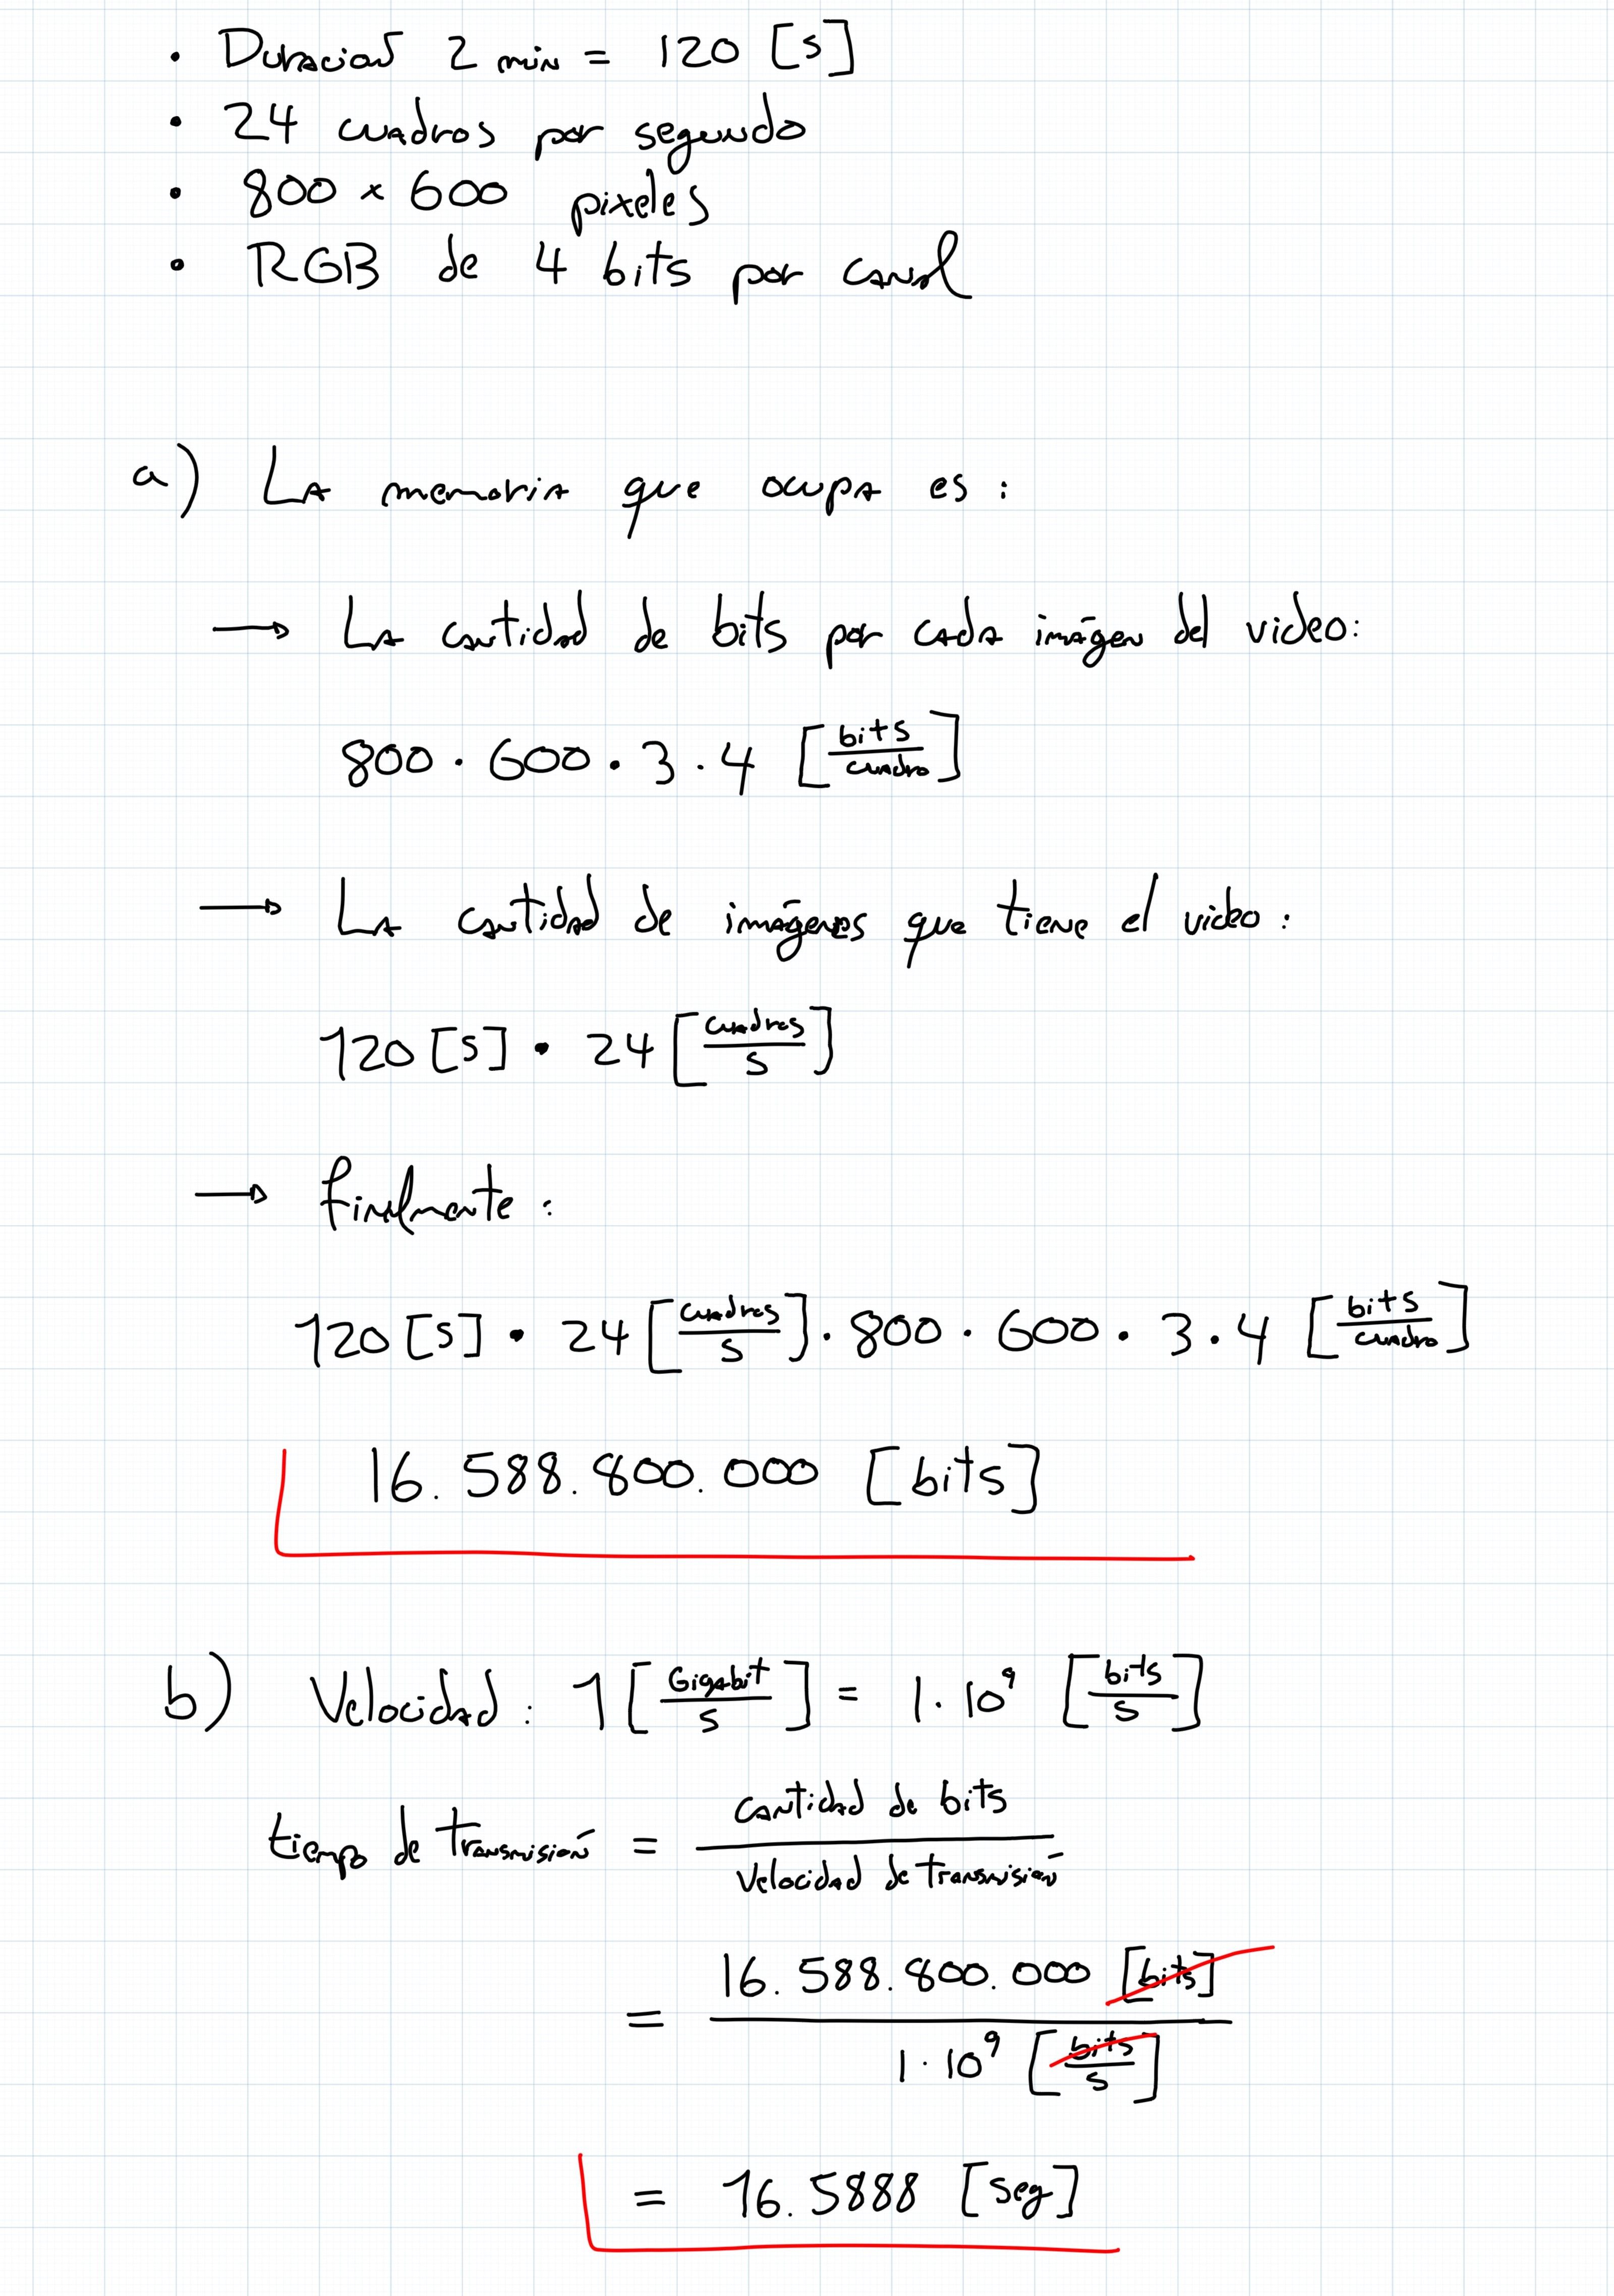 • Duración 2 min = 120 [s]
• 24 cuadros por segundo
• 800 × 600 pixeles
• RGB de 4 bits por canal
a) La memoria que ocupa es :
→ La cantidad de bits por cada imágen del video:
800 · 600 · 3 · 4 [bits/cuadro]
→ La cantidad de imágenes que tiene el video :
120 [s] · 24 [cuadros/s]
→ finalmente :
120 [s] · 24 [cuadros/s] · 800 · 600 · 3 · 4 [bits/cuadro]
16. 588. 800. 000 [bits]
b) Velocidad : 1 [Gigabit/s] = 1 · 10⁹ [bits/s]
tiempo de transmisión = cantidad de bits / velocidad de transmisión
= 16. 588. 800. 000 [bits] / 1 · 10⁹ [bits/s]
= 16. 5888 [seg]